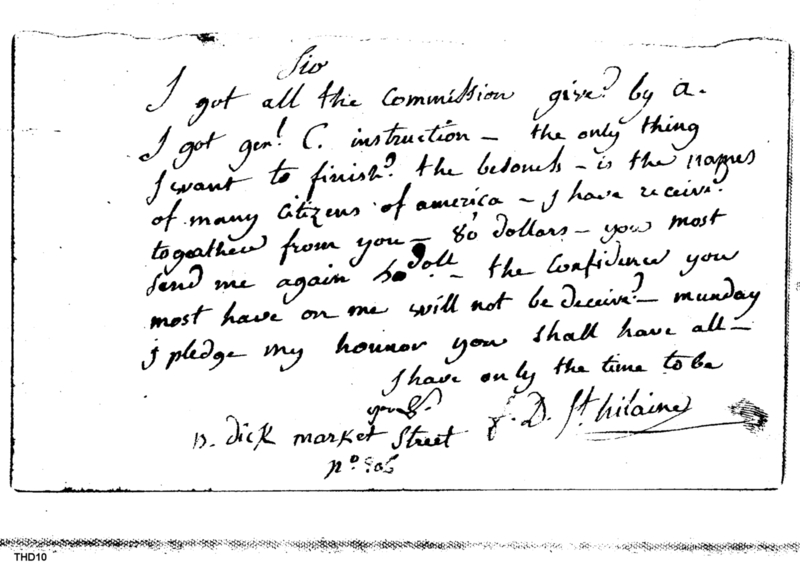 Sir
I got all the Commission give.d by A.
I got gen.l C. instruction – the only thing
I want to finish.d the besoness – is the names
of many Citizens of america – I have receive.d
togeather from you – 80 dollars – you most
send me again doll – the Confidence you
most have on me will not be deceive.d – munday
I pledge my honnor you shall have all –
I have only the time to be
your &.
f. D. St hilaire
B. dick market Street
no 206
THD10